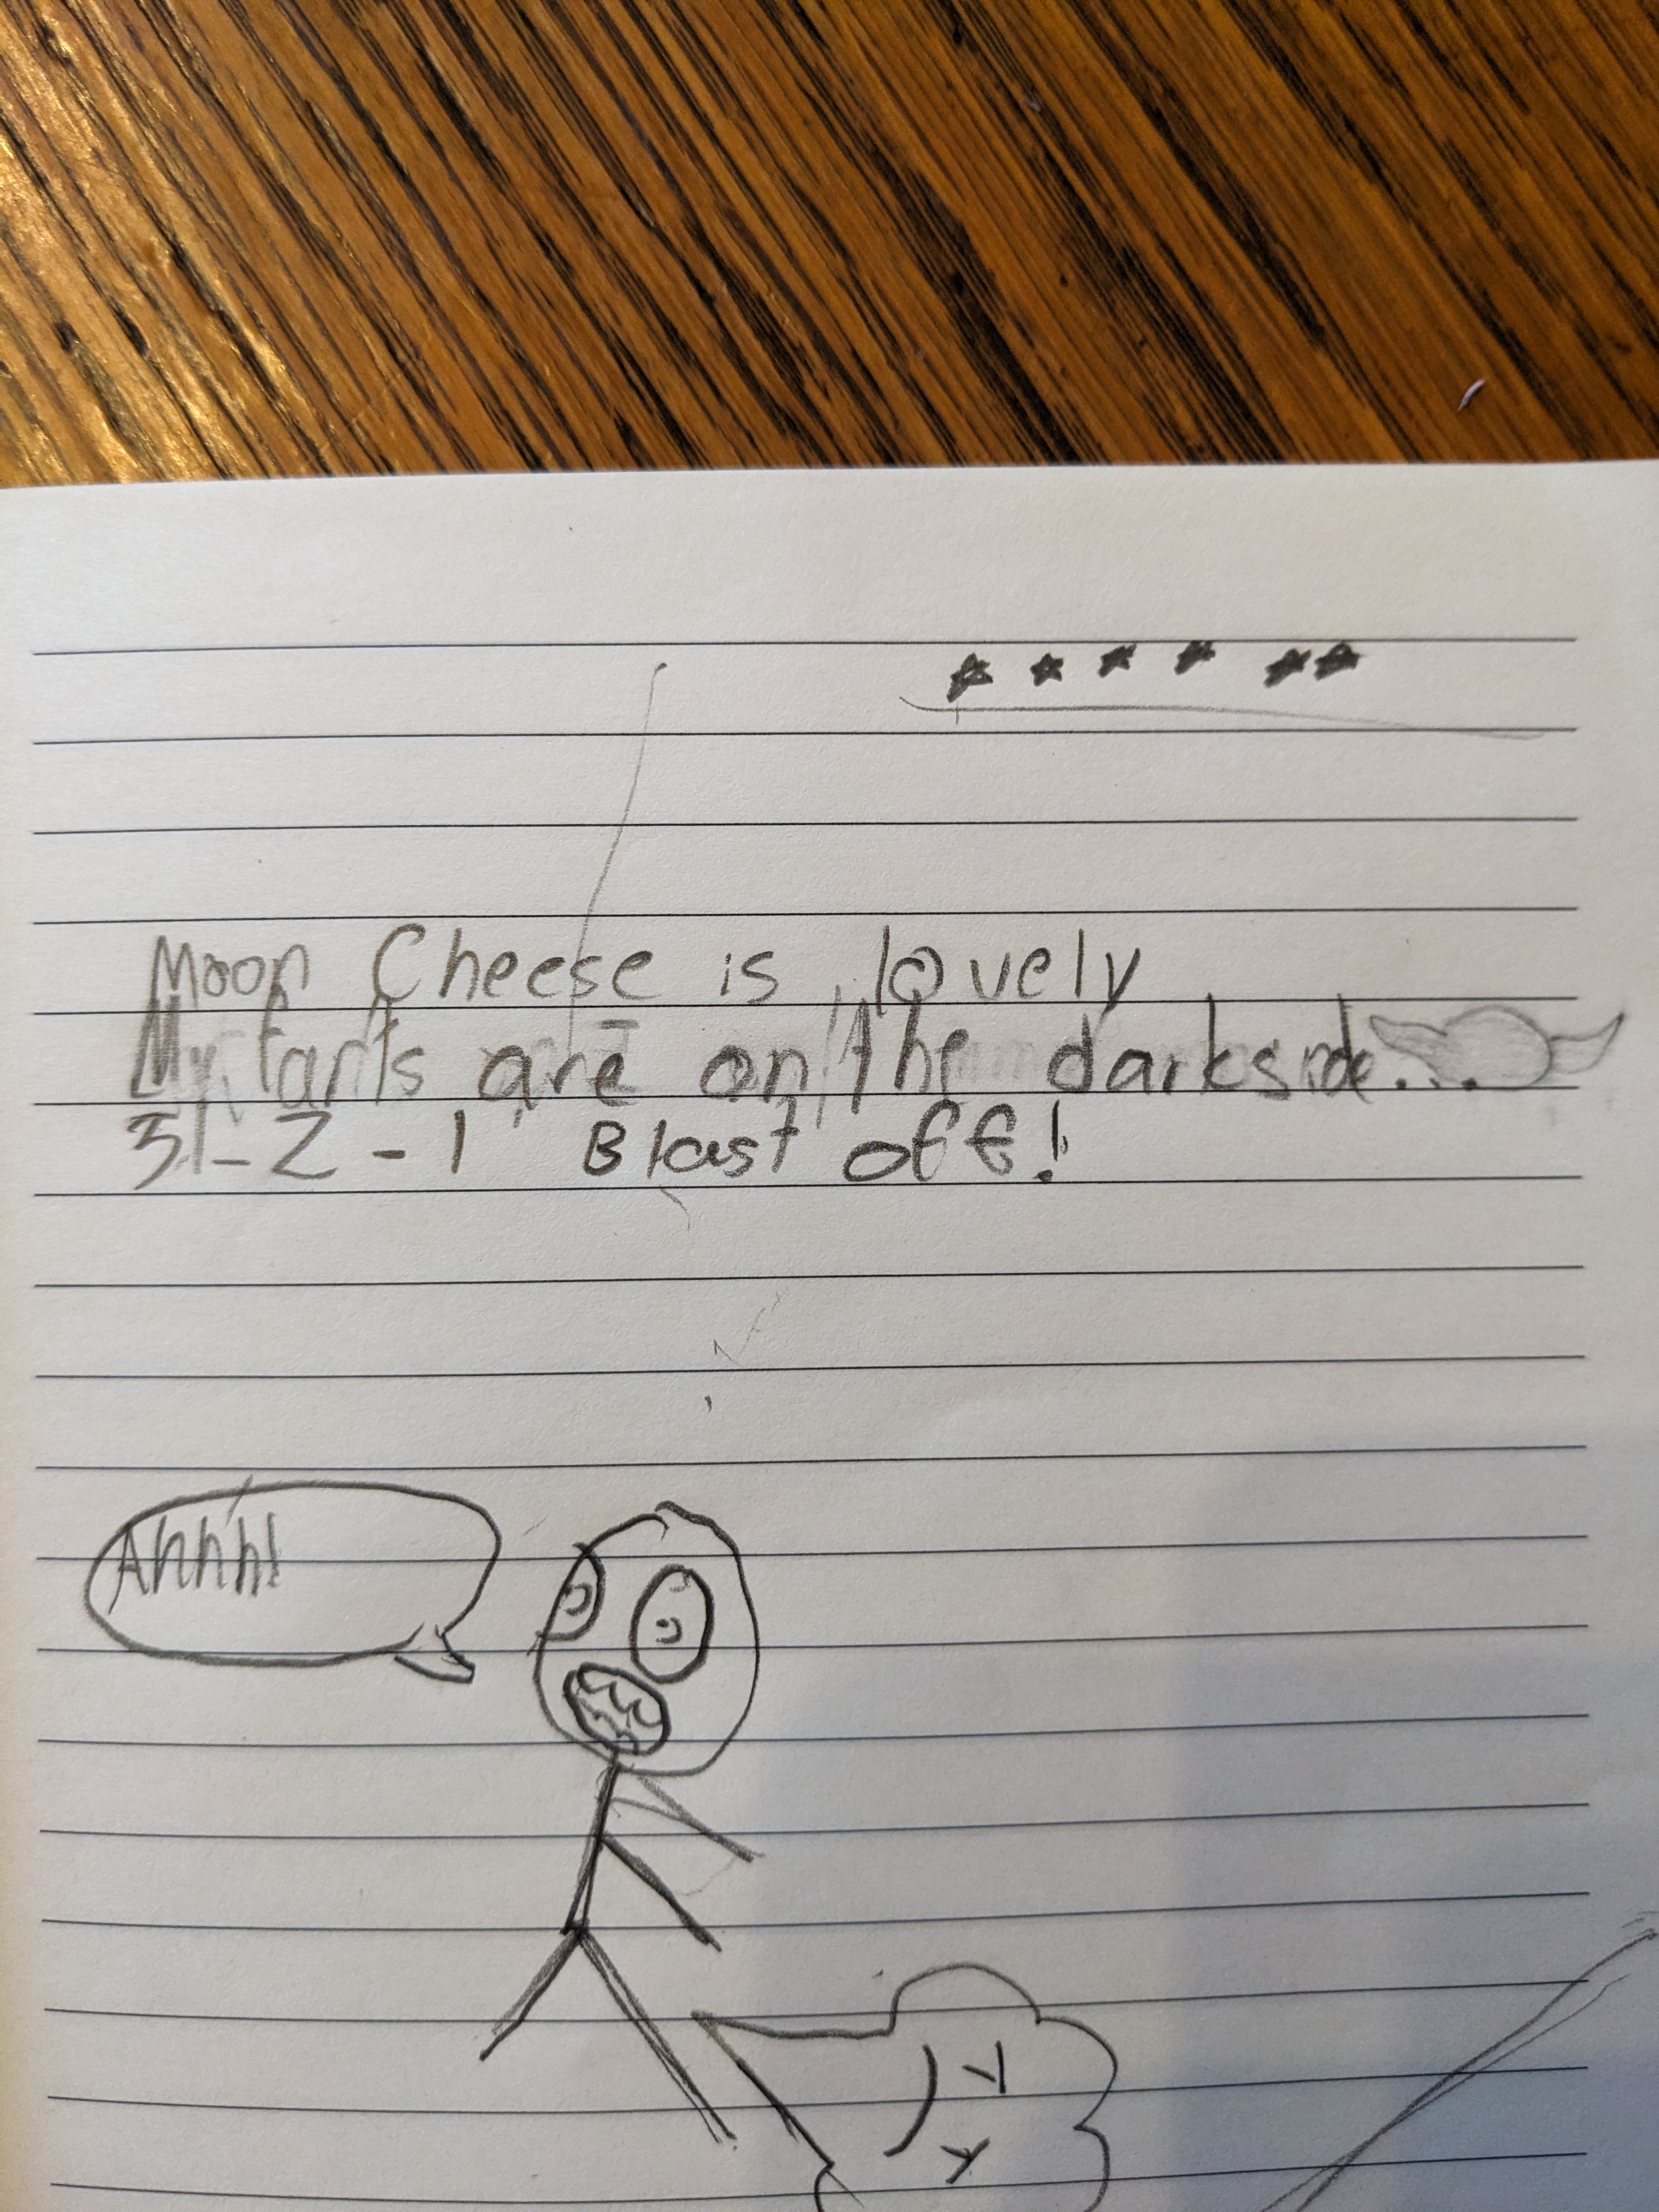 Moon Cheese is lovely
My farts are on the darkside...
3-2-1 Blast off!
Ahhh!